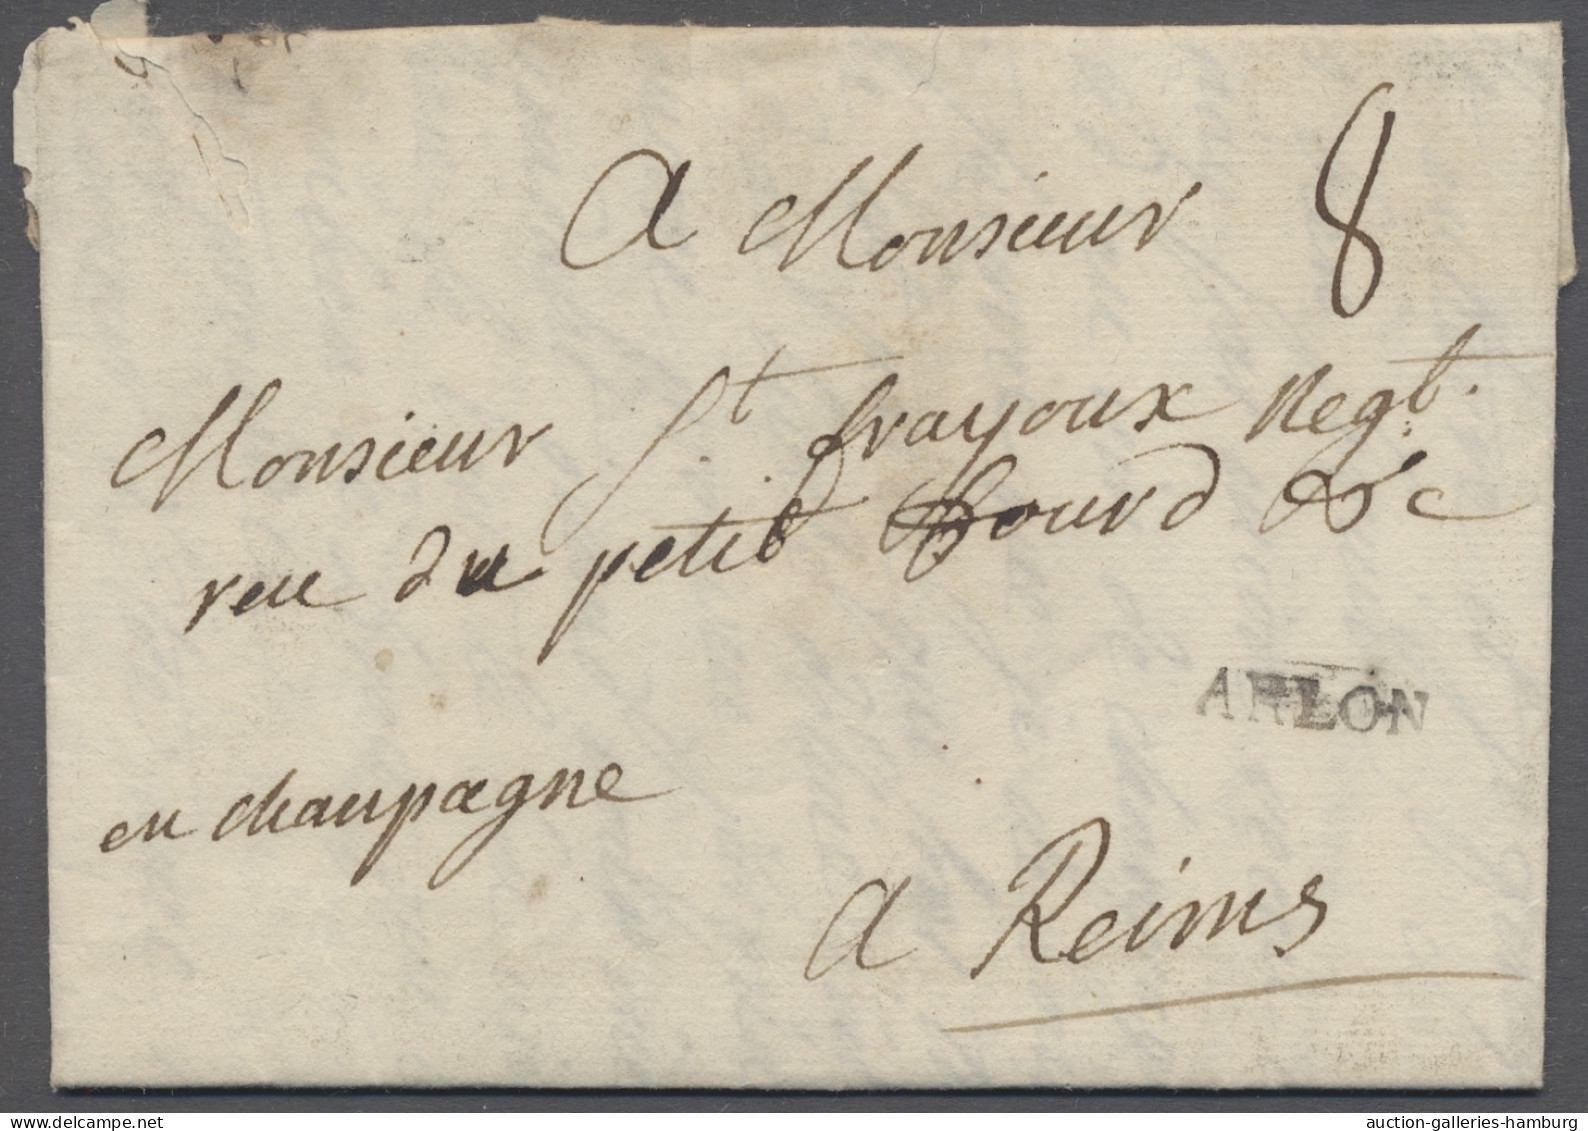 A Monsieur 8
Monsieur St frayoux Negt.
reu du petit bourd &c
ARLON
en chanpagne
a Reims
auction-galleries-hamburg
www.delcampe.net